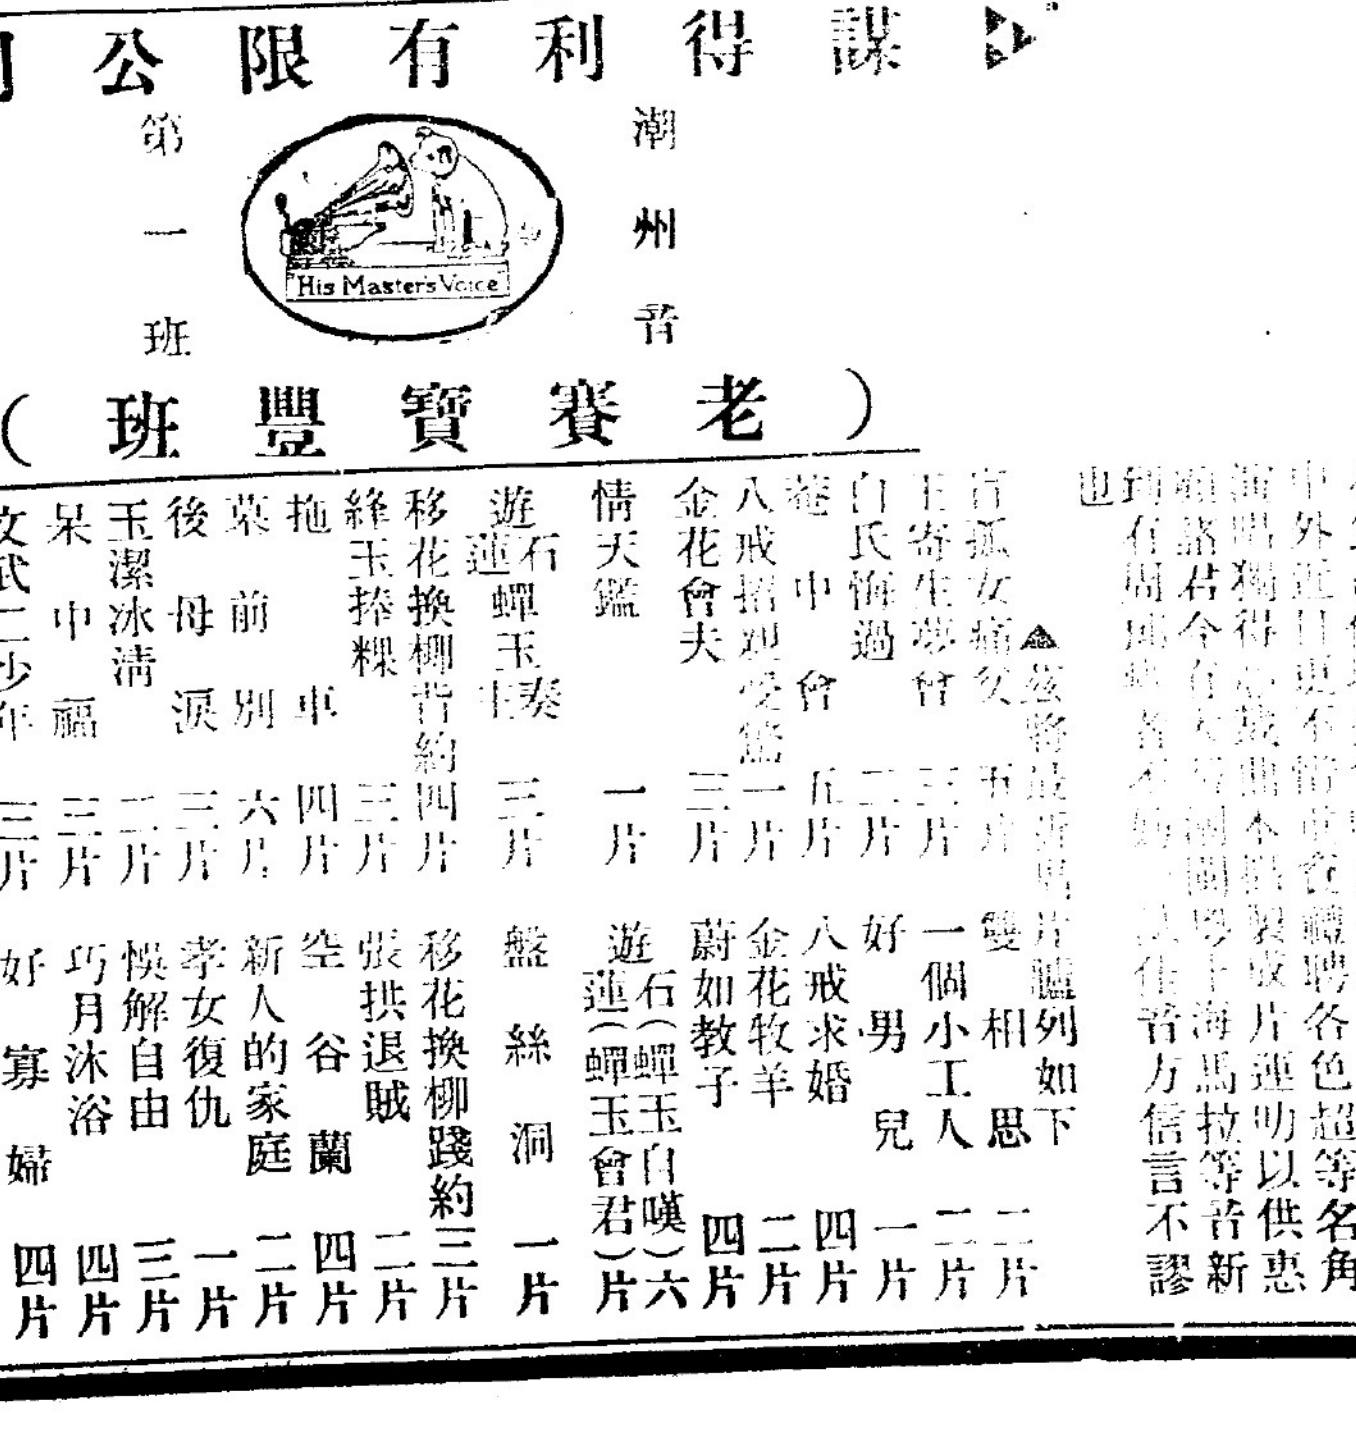 謀得利有限公
潮州音
His Master's Voice
第一班
（老賽寶豐班）
中外近日更不惜重資禮聘各色超等名角
演唱獨得心裁曲本攝製成片運叻以供惠
顧諸君今有大幫潮閩粵上海馬拉等音新
到有周郎癖者不妨一試佳音方信言不謬
也
▲茲將最新唱片臚列如下
孤女痛父 五片 雙相思 二片
王寄生夢會 三片 一個小工人 二片
白氏悔過 二片 好男兒 一片
菴中會 五片 八戒求婚 四片
八戒招親受 一片 金花牧羊 二片
金花會夫 三片 蔚如教子 四片
情天鑑 一片 遊石蓮（蟬玉自嘆）（蟬玉會君） 六片
遊石蓮蟬玉奏主 三片 盤絲洞 一片
移花換柳背約 四片 移花換柳踐約 三片
絳玉捧粿 三片 張拱退賊 二片
拖車 四片 空谷蘭 四片
墓前別 六片 新人的家庭 二片
後母淚 三片 孝女復仇 一片
玉潔冰淸 二片 悞解自由 三片
呆中福 三片 巧月沐浴 四片
文武二少年 三片 好寡婦 四片